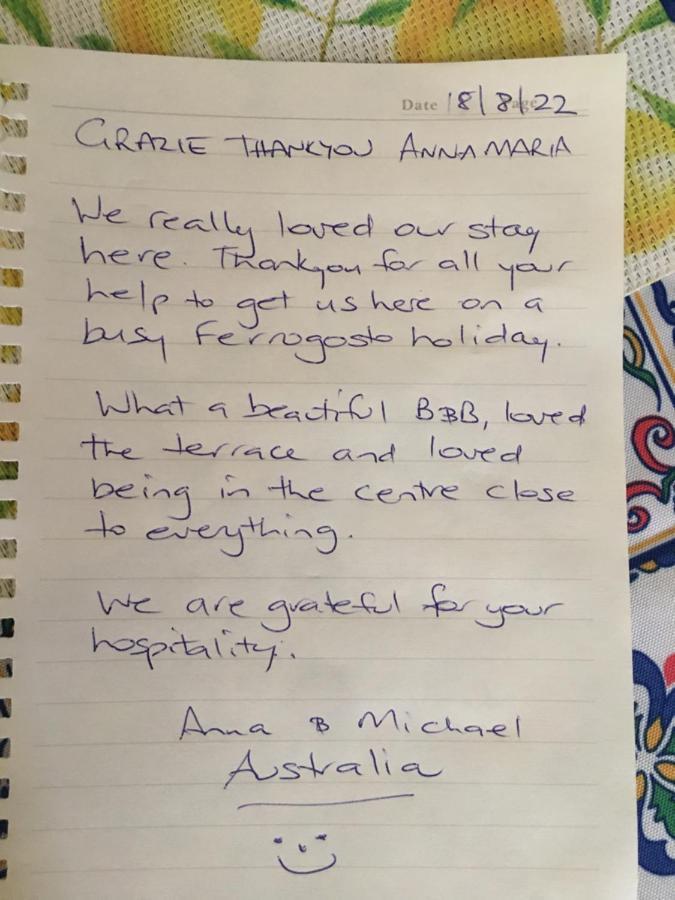 Date 18/8/22
GRAZIE THANKYOU ANNAMARIA
We really loved our stay
here. Thankyou for all your
help to get us here on a
busy Ferrogosto holiday.
What a beautiful B&B, loved
the terrace and loved
being in the centre close
to everything.
We are grateful for your
hospitality.
Anna & Michael
Australia